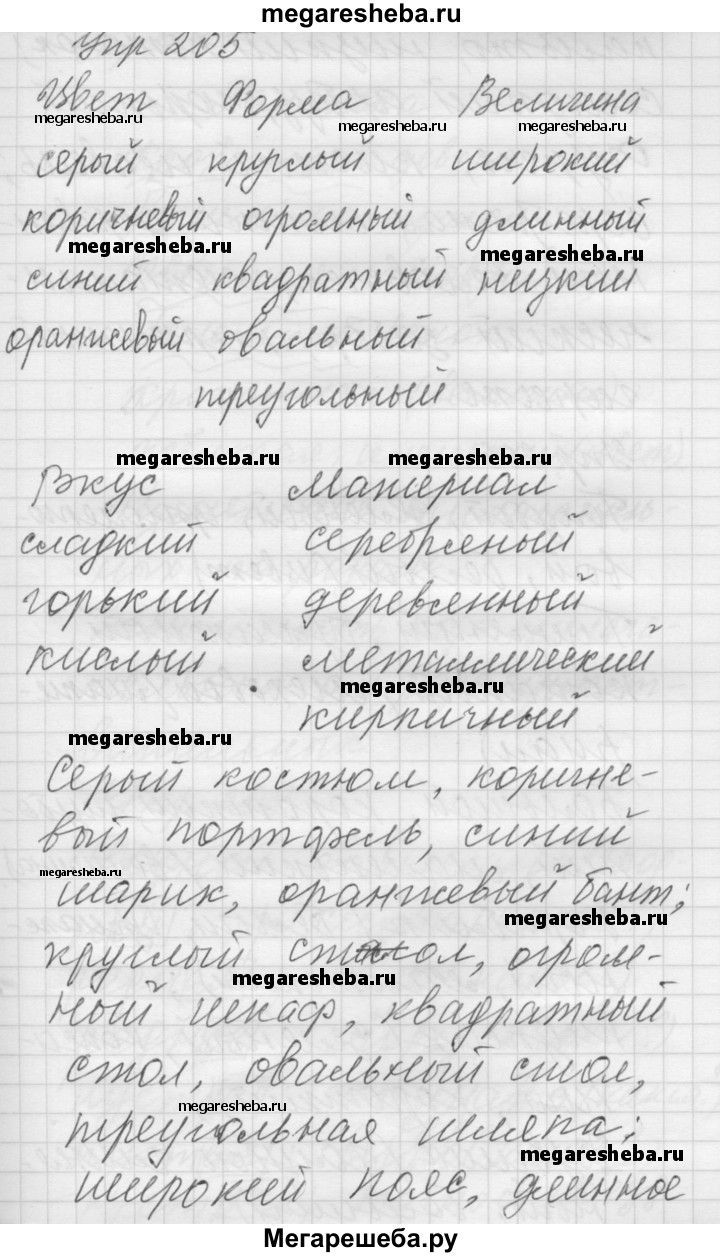 megaresheba.ru
Упр 205
Цвет Форма Величина
megaresheba.ru megaresheba.ru megaresheba.ru
серый круглый широкий
коричневый огромный длинный
megaresheba.ru megaresheba.ru
синий квадратный низкий
оранжевый овальный
треугольный
megaresheba.ru megaresheba.ru
Вкус Материал
сладкий серебряный
горький деревянный
кислый металлический
megaresheba.ru
кирпичный
megaresheba.ru
Серый костюм, коричне-
вый портфель, синий
megaresheba.ru
шарик, оранжевый бант;
megaresheba.ru
круглый стол, огром-
megaresheba.ru
ный шкаф, квадратный
стол, овальный стол,
megaresheba.ru
треугольная шляпа;
megaresheba.ru
широкий пояс, длинное
Мегарешеба.ру